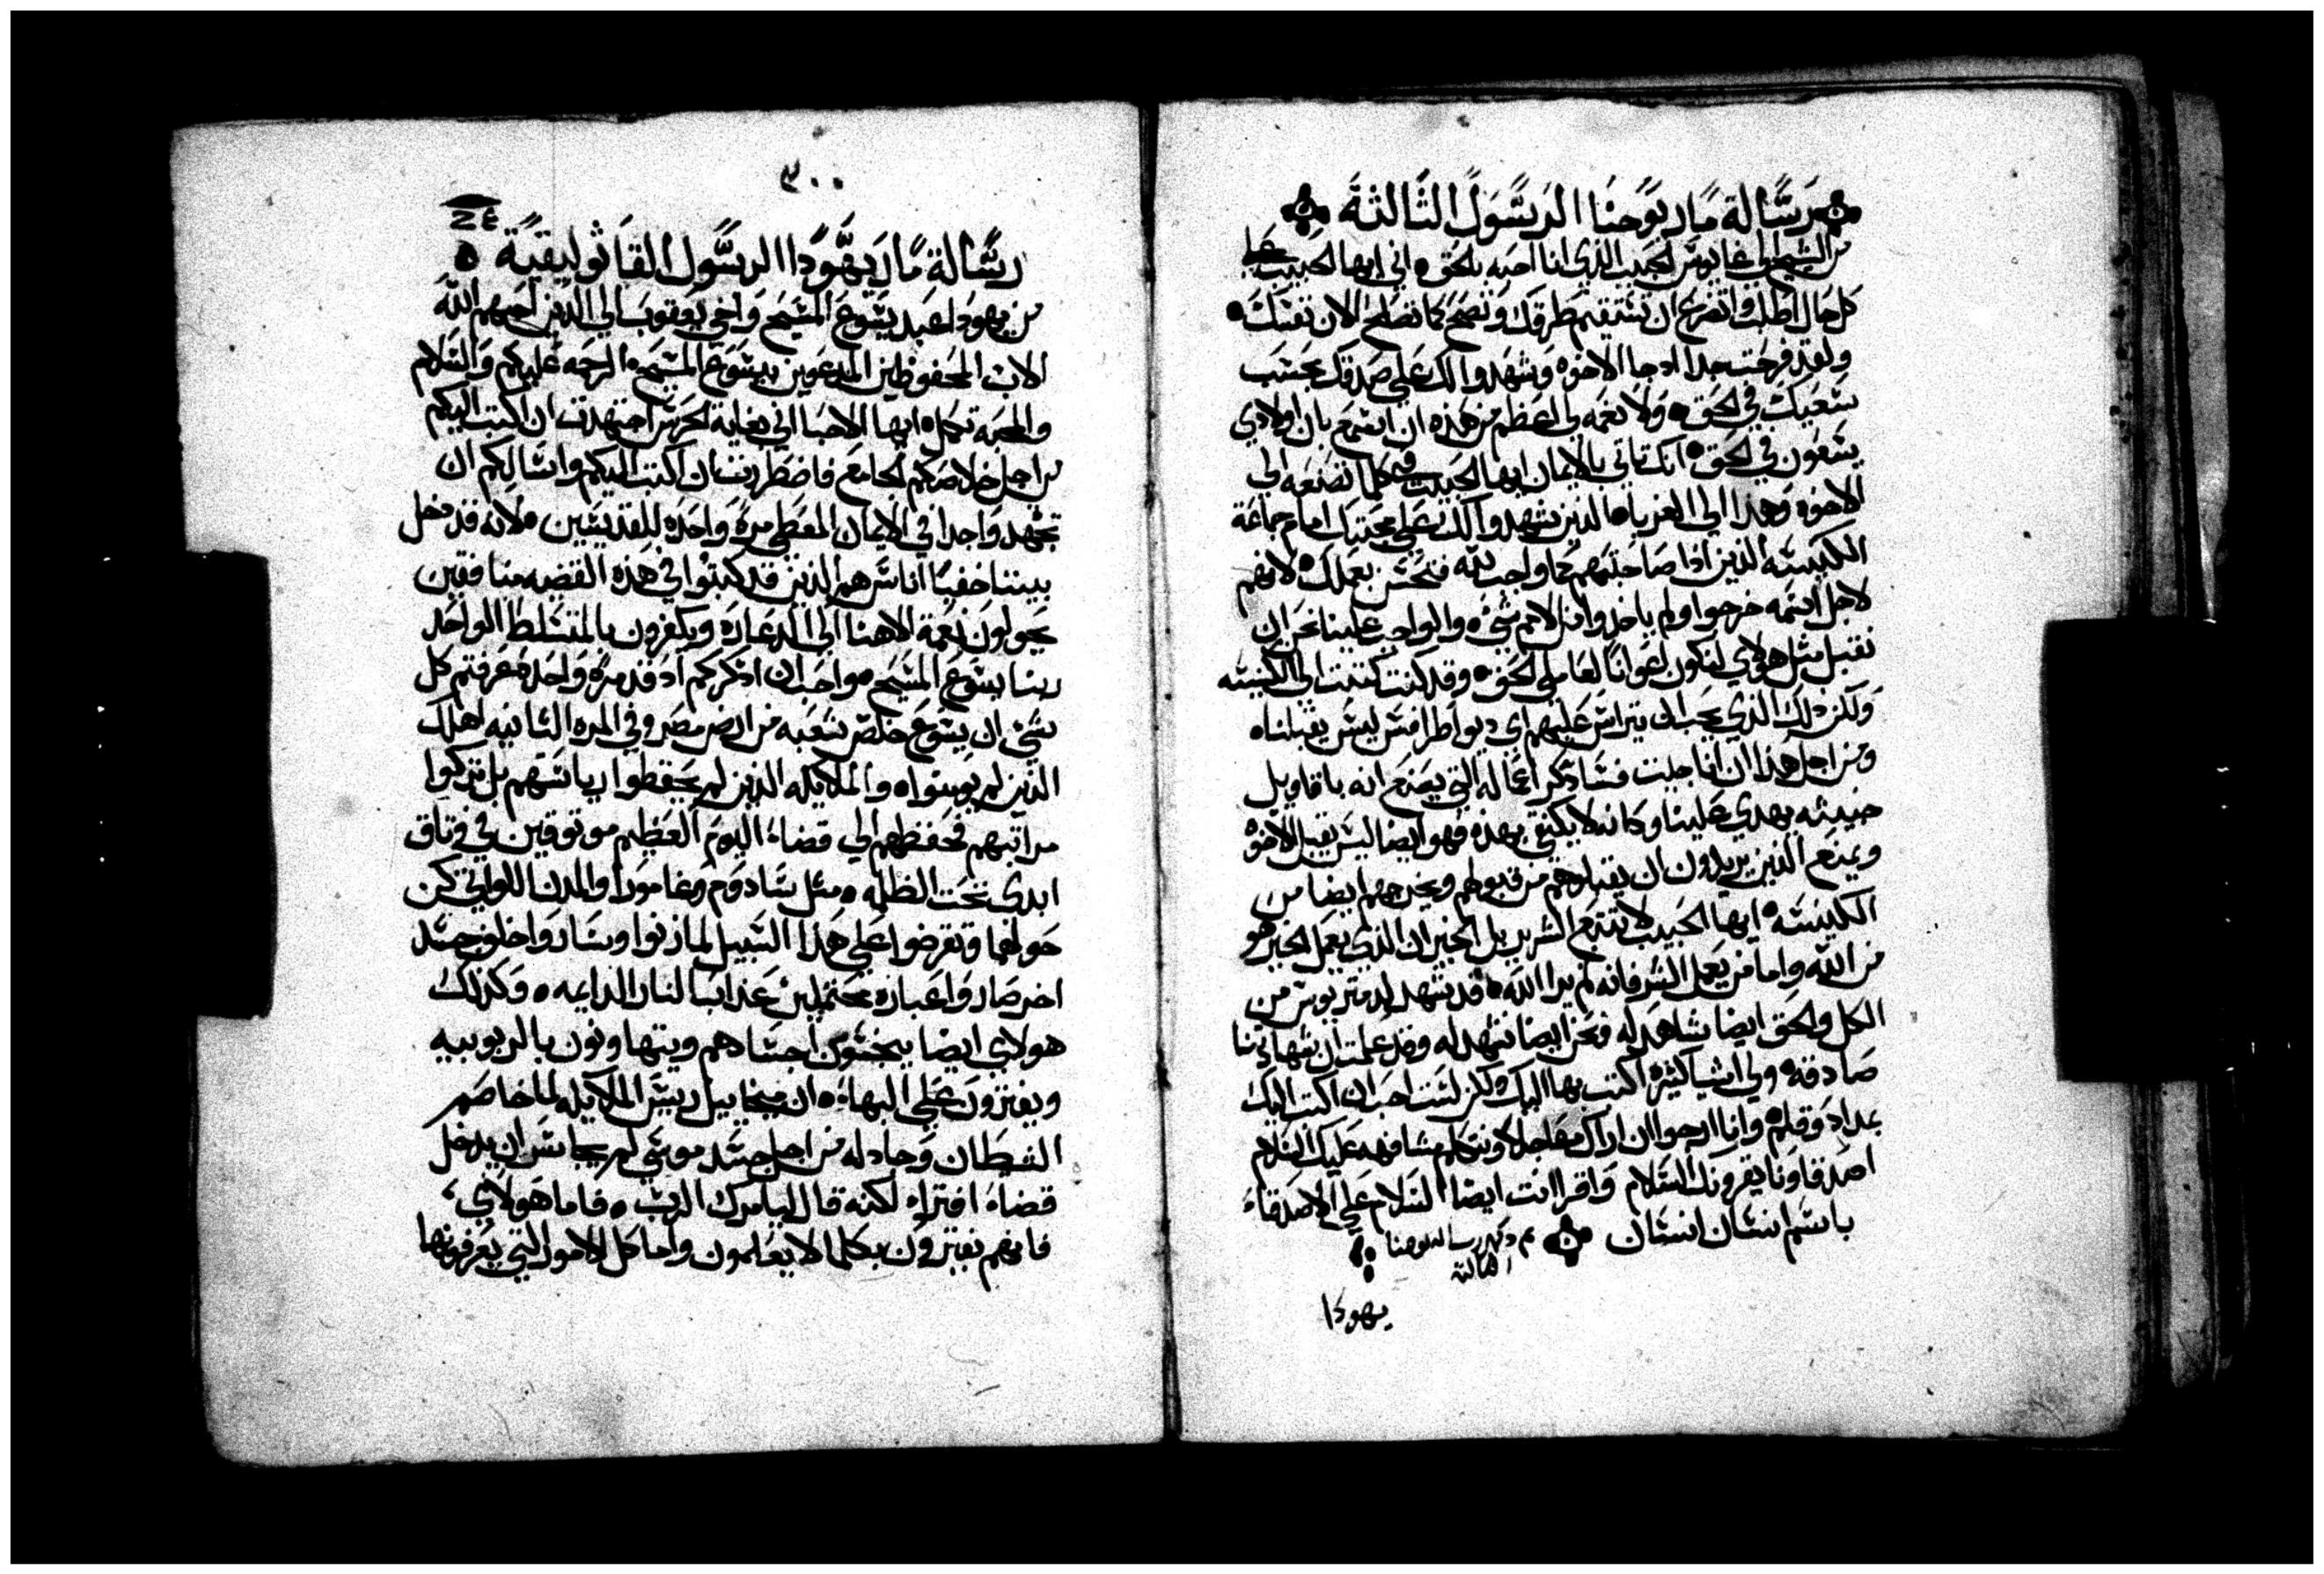 رسالة مار يوحنا الرسول الثالثة
من الشيخ الى غايوس الحبيب الذي انا احبه بالحق ه اني ايها الحبيب على
كل حال اطلب واتضرع ان تستقيم طرقك وتصح كما تصلح الان نفسك ه
ولقد فرحت جدا اد جا الاخوه وشهدوا لك على صدقك بحسب
سعيك في الحق ه ولا نعمه لي اعظم من هذه ان اسمع بان اولادي
يسعون في الحق ه انك تاتي بالايمان ايها الحبيب في كلما تصنعه الى
الاخوه وهذا الى الغربا ه الذين شهدوا لك على محبتك امام جماعة
الكنيسه الذين اذا صاحبتهم كما واجب لله فتحسن بعملك ه لانهم
لاجل اسمه خرجوا ولم ياخذوا من الامم شي ه والواجب علينا نحن ان
نقبل مثل هولاي لنكون اعوانا لعاملى الحق ه وقد كنت كتبت الى الكنيسه
ولكن دلك الذي يحب ان يتراس عليهم اي ديواطرافس ليس يقبلنا ه
ومن اجل هذا ان انا جيت فساذكر اعماله التي يصنع انه باقاويل
خبيثه يهدي علينا وكانه لا يكتفي بهذه فهو ايضا ليس يقبل الاخوه
ويمنع الذين يريدون ان يقبلوهم من قبولهم ويخرجهم ايضا من
الكنيسه ه ايها الحبيب لا تتبع الشر بل الخير ان الذي يعمل الخير هو
من الله واما من يعمل الشر فانه لم يرا الله ه قد شهد لدمتريوس من
الكل والحق ايضا شاهد له ونحن ايضا نشهد له وقد علمت ان شهادتنا
صادقه ه ولي اشيا كثيره اكتب بها اليك ولكن لست احب ان اكتب اليك
بمداد وقلم ه وانا ارجوا ان اراك عاجلا ونتكلم مشافهه عليك السلام
اصدقاونا يقرونك السلام واقرا انت ايضا السلام على الاصدقاء
باسم انسان انسان تم وكمل رسالة يوحنا
الثالثة
يهودا
٣٠٠
٢٤
رسالة مار يهودا الرسول القاثوليقية ه
من يهودا عبد يسوع المسيح واخي يعقوب الى الدين احبهم الله
الاب المحفوظين المدعوين بيسوع المسيح ه الرحمه عليكم والسلام
والمحبة تكمل ه ايها الاحبا اني بغاية الحرص اجتهدت ان اكتب اليكم
من اجل خلاصكم الجامع فاضطررت ان اكتب اليكم واسالكم ان
تجتهدوا جدا في الايمان المعطى مرة واحده للقديسين ه لانه قد دخل
بيننا خفيا اناس هم الذين قد كتبوا في هذه القضيه منافقين
يحولون نعمة الاهنا الى الدعاره ويكفرون بالمتسلط الواحد
ربنا يسوع المسيح ه واحب ان اذكركم اد قد مرة واحدة عرفتم كل
شي ان يسوع خلص شعبه من ارض مصر وفي المره الثانيه اهلك
الذين لم يومنوا ه والملايكه الذين لم يحفظوا رياستهم بل تركوا
مراتبهم فحفظهم الى قضاء اليوم العظيم موثوقين في وثاق
ابدى تحت الظله ه مثل سادوم وغامورا والمدن اللواتي كن
حولهما وتقرضوا على هذا السبيل لما زنوا وساروا خلف جسد
اخر صاروا عباره محتملين عذاب النار الدايمه ه وكذلك
هولاي ايضا ينجسون اجسادهم ويتهاونون بالربوبيه
ويفترون على البهاء ه ان ميخاييل ريس الملايكه لما خاصم
الشيطان وجادله من اجل جسد موسى لم يجاسر ان يدخل
قضاء افتراء لكنه قال ليامرك الرب ه فاما هولاي
فانهم يفترون بكلما لا يعلمون واما كل الامور التي يعرفونها